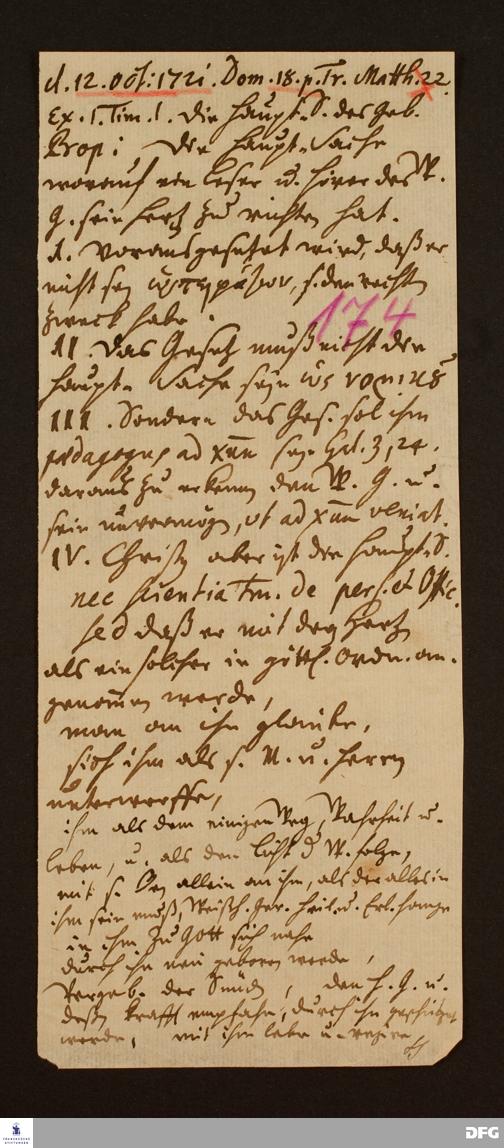 d. 12. Oct: 1721. Dom. 18. p. Tr. Matth. 22.
Ex. 1. Tim. 1. die Haupt-S. des Geb.
Prop: Die Haupt-Sache
worauf ein Leser u. Hörer des W.
G. sein Hertz zu richten hat.
I. Vorausgesetzet wird, daß er
nicht sey, s. den rechten
Zweck habe.
174
II. Das Gesetz muß nicht die
Haupt-Sache seyn
III. Sondern das Ges. sol ihm
pædagogus ad Xum seyn Gal. 3, 24.
daraus zu erkennen den W. G. u.
sein unvermögen, ut ad Xum veniat.
IV. Christus aber ist die Haupt-S.
nec scientia tm. de pers. et Offic.
sed daß er mit dem Hertz
als ein solcher in göttl. Ordn. an-
genommen werde,
man an ihn glaube,
sich ihm als s. u. Herrn
unterwerffe,
ihm als dem einigen Weg, Wahrheit u.
Leben, u. als dem Licht d. W. folge,
mit s. allein an ihm, als der alles in
ihm sein muß, Weish. Ger. Heil. u. Erl. hange
in ihm zu Gott sich nahe
durch ihn neu geboren werde,
Vergeb. der Sünden, den H. G. u.
deßen Krafft empfahe, durch ihn
werde, mit ihm lebe u. regire
FRANCKESCHE STIFTUNGEN
DFG